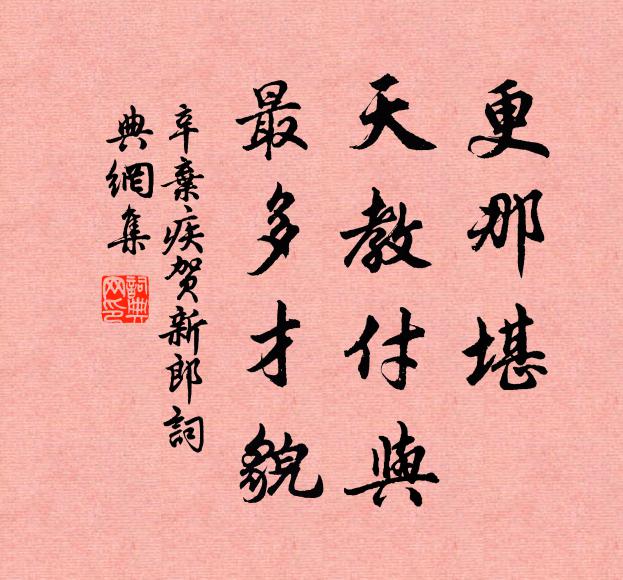 更那堪
天教付與
最多才貌
辛棄疾賀新郎詞
典網集
詞典
网印